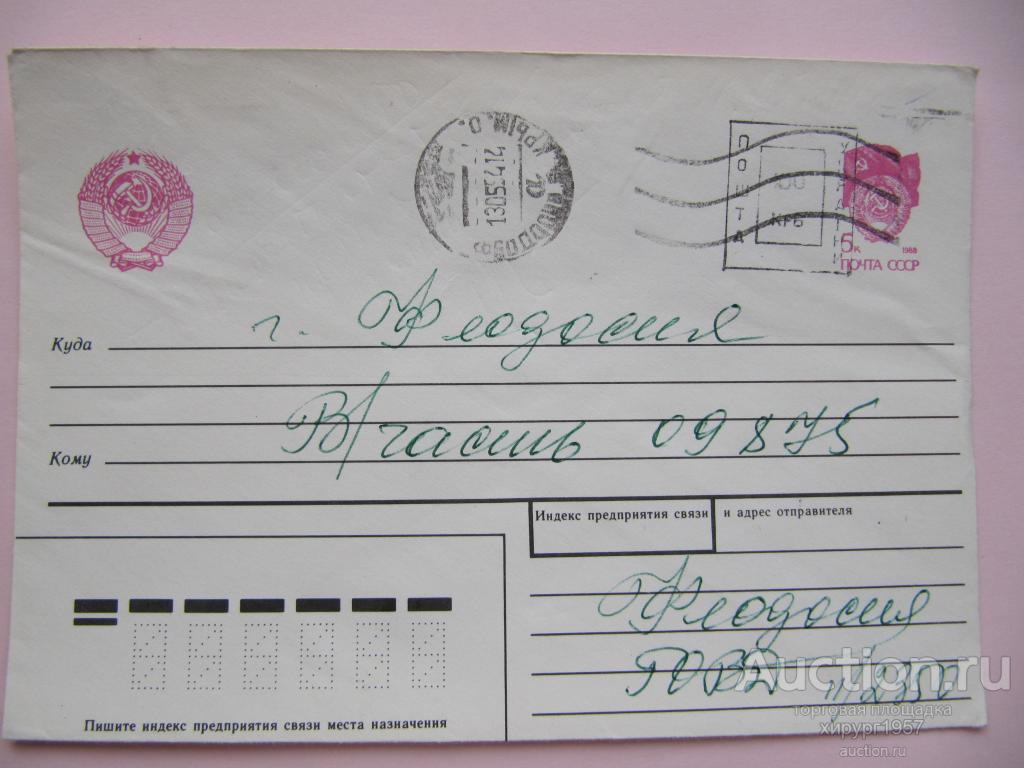 КРЫМ. О.
13 05 94 14
ПОШТА
крб
5к 1988
ПОЧТА СССР
г. Феодосия
Куда
В/часть 09875
Кому
Индекс предприятия связи и адрес отправителя
Феодосия
ГОВД
Пишите индекс предприятия связи места назначения
Auction.ru
торговая площадка
хирург1957
auction.ru